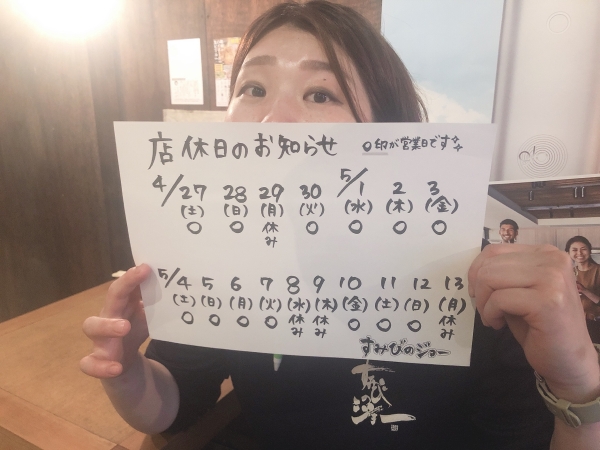 店休日のお知らせ ○印が営業日です
4/27 28 29 30 5/1 2 3
(土) (日) (月) (火) (水) (木) (金)
○ ○ 休み ○ ○ ○ ○
5/4 5 6 7 8 9 10 11 12 13
(土) (日) (月) (火) (水) (木) (金) (土) (日) (月)
○ ○ ○ ○ 休み 休み ○ ○ ○ 休み
すみびのジョー
すみびのジョー